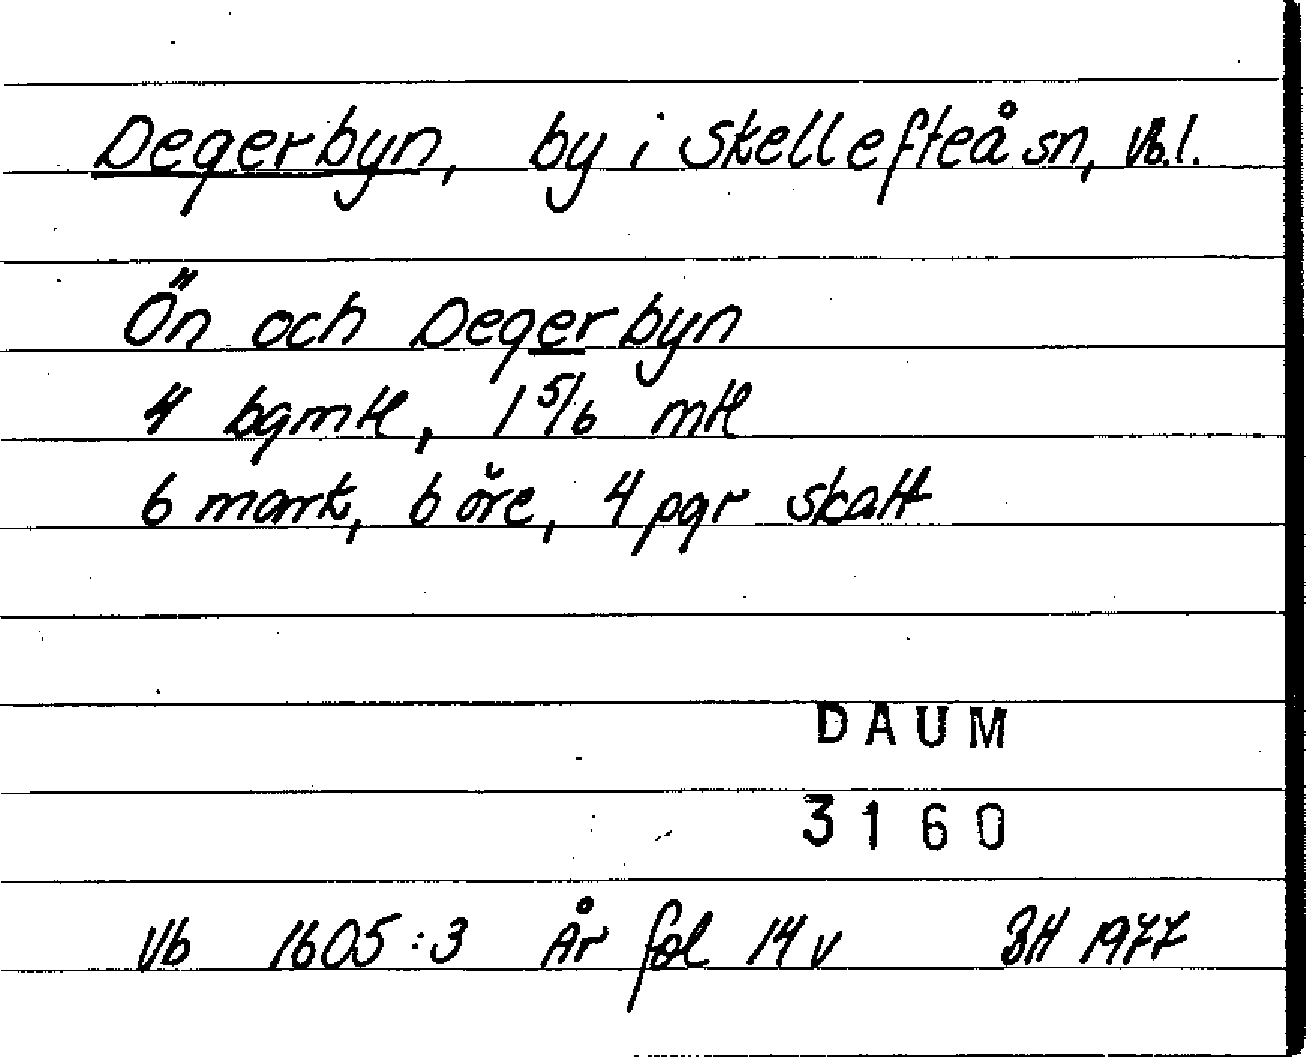 Degerbyn, by i Skellefteå sn, Vb.l.
Ön och Degerbyn
4 bgmtl, 1 5/6 mtl
6 mark, 6 öre, 4 pgr skatt
DAUM
3160
Vb 1605:3 År fol 14 v BH 1977